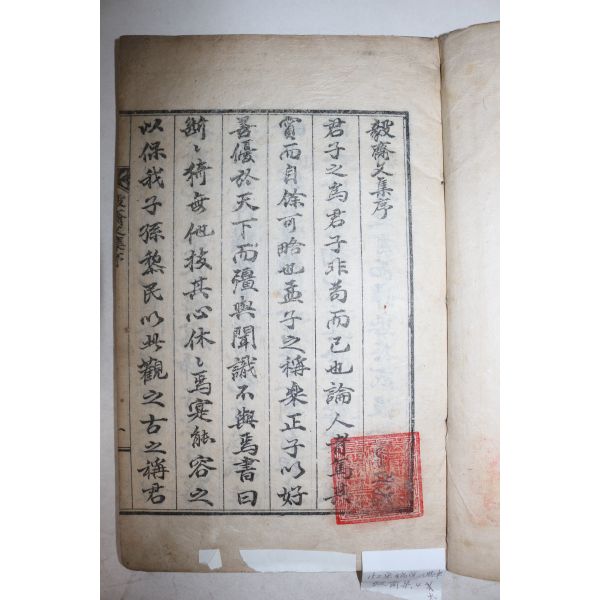 毅齋文集序
君子之爲君子非苟而已也論人者爲其
實而自餘可略也孟子之稱樂正子以好
善優於天下而彊與聞識不與焉書曰
斷〻猗無他技其心休〻焉寔能容之
以保我子孫黎民以此觀之古之稱君
毅齋文集序
一